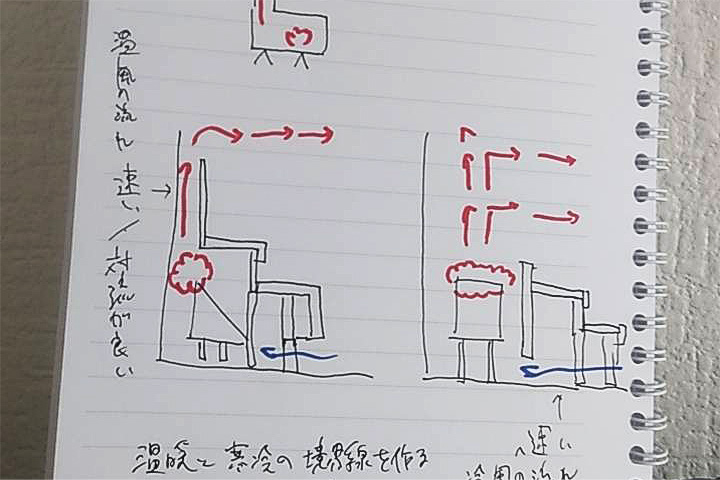 温風の流れ 速い/対流が良い
温暖と寒冷の境界線を作る
速い
冷風の流れ